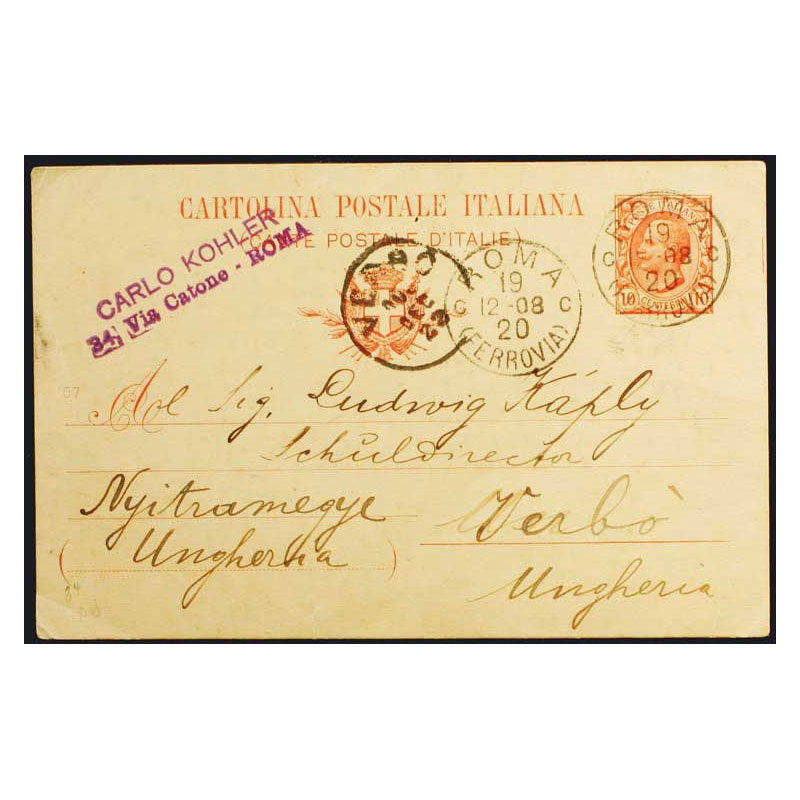 CARTOLINA POSTALE ITALIANA
(CARTE POSTALE D'ITALIE)
CARLO KOHLER
34, Via Catone - ROMA
VERBO
ROMA
19
C 12-08 C
20
(FERROVIA)
ROMA
19
C 08 C
20
10 CENTESIMI 10
07
A
Al Sig. Ludwig Káply
Schuldirector
Nyitramegye
Verbò
Ungheria
Ungheria